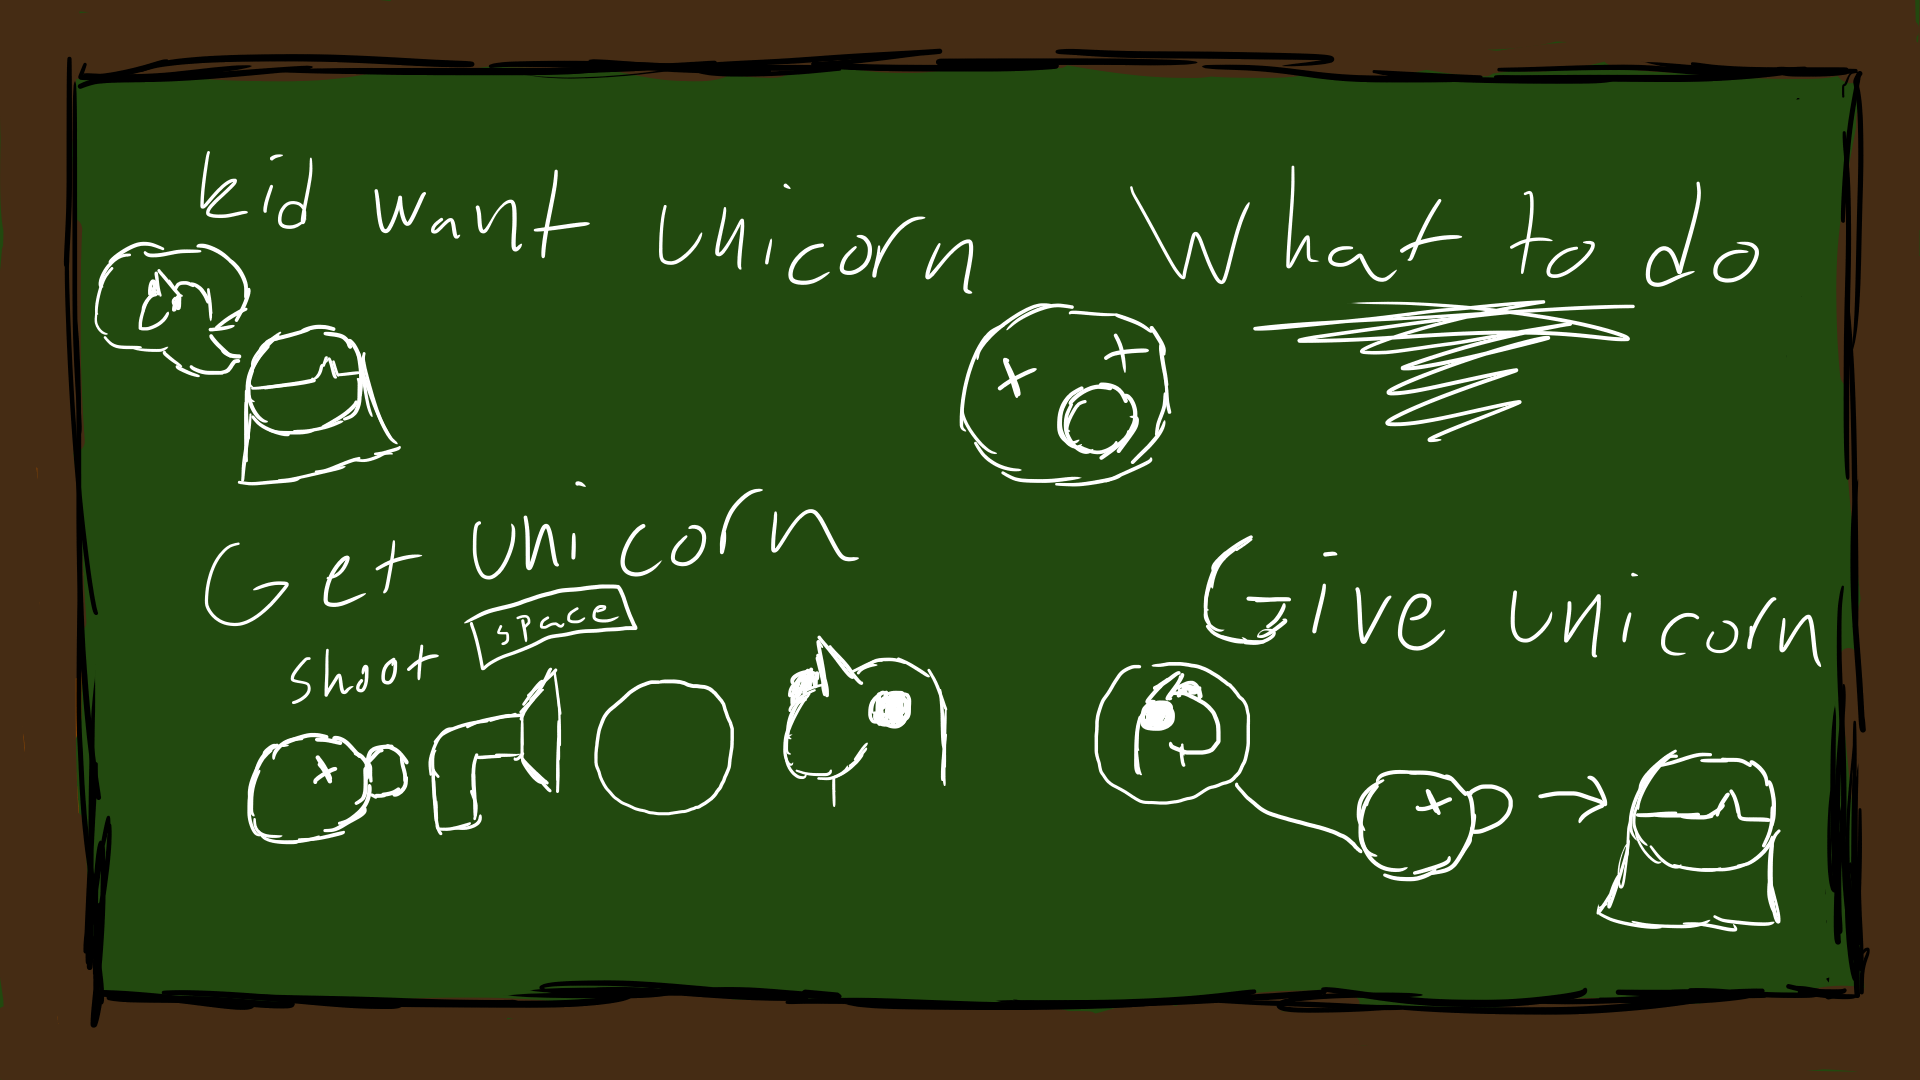 kid want unicorn
What to do
Get unicorn
shoot space
Give unicorn